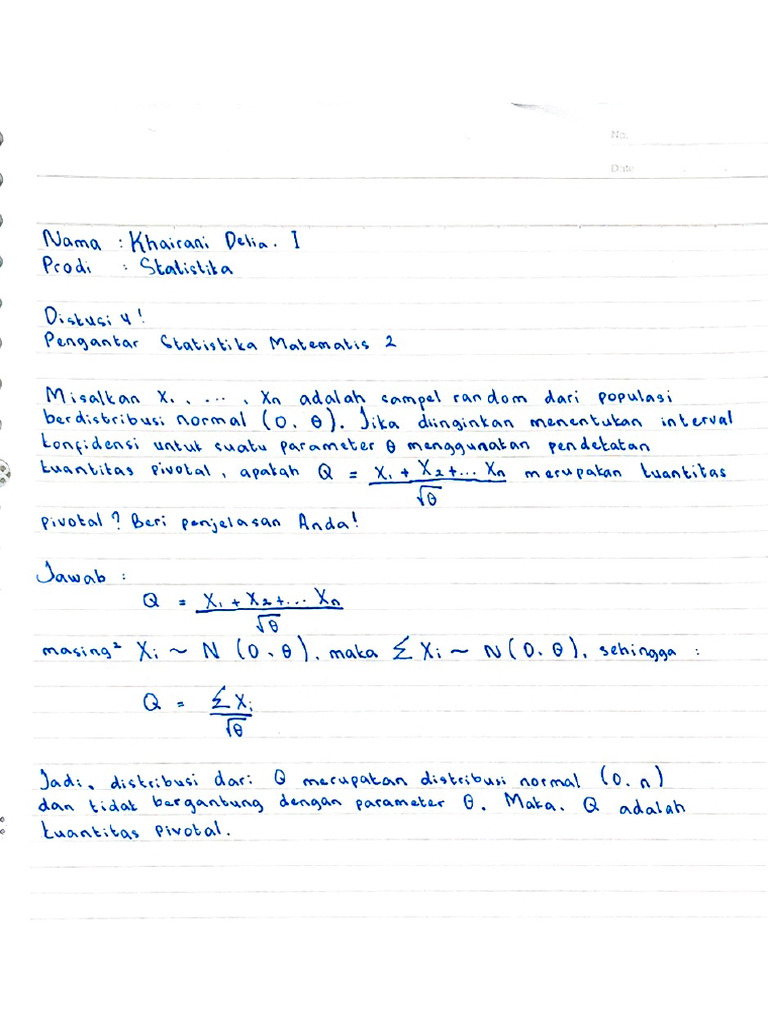 No.
Date
Nama : Khairani Delia. I
Prodi : Statistika
Diskusi 4!
Pengantar Statistika Matematis 2
Misalkan X₁, ..., Xn adalah sampel random dari populasi
berdistribusi normal (0, θ). Jika diinginkan menentukan interval
konfidensi untuk suatu parameter θ menggunakan pendekatan
kuantitas pivotal, apakah Q = X₁ + X₂ + ... Xn / √θ merupakan kuantitas
pivotal? Beri penjelasan Anda!
Jawab :
Q = X₁ + X₂ + ... Xn / √θ
masing² Xi ~ N (0, θ), maka Σ Xi ~ N (0, θ), sehingga :
Q = Σ Xi / √θ
Jadi, distribusi dari Q merupakan distribusi normal (0, n)
dan tidak bergantung dengan parameter θ. Maka, Q adalah
kuantitas pivotal.